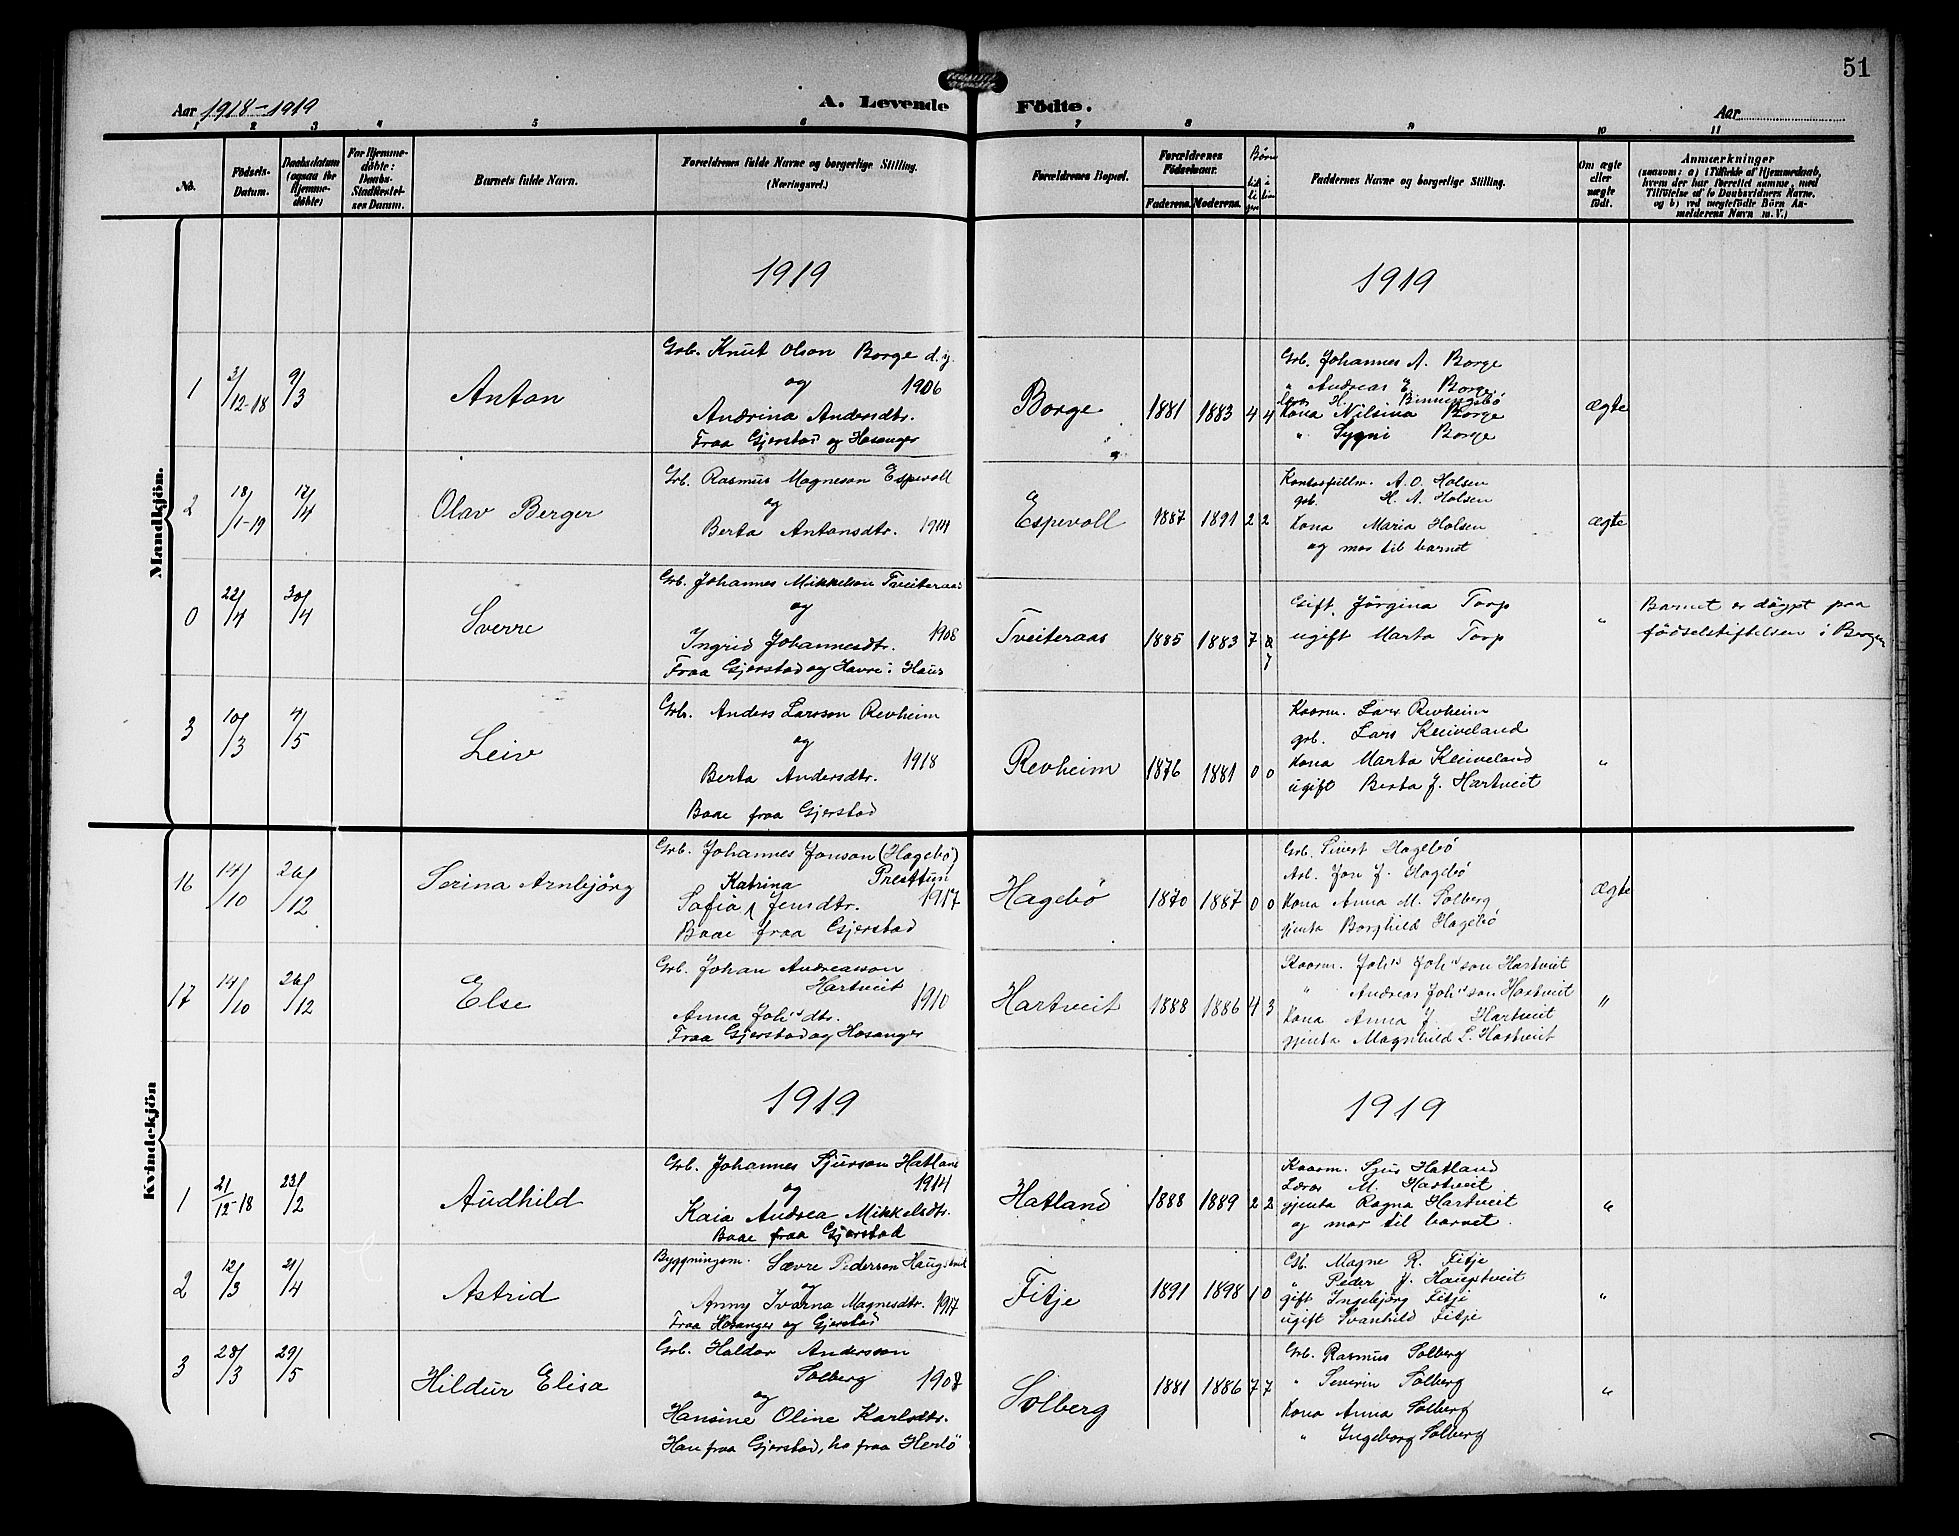 51
Aar 1918-1919
A. Levende Födte.
Aar
1 2 3 4 5 6 7 8 9 10 11
No.
Födsels-
Datum.
Daabsdatum
(ogsaa for
Hjemme-
döbte)
For Hjemme-
döbte:
Daabs-
Stadfæstel-
ses Datum.
Barnets fulde Navn.
Forældrenes fulde Navne og borgerlige Stilling.
(Næringsvei.)
Forældrenes Bopæl.
Forældrenes
Födselsaar.
Faderens. Moderens.
Börn
Faddernes Navne og borgerlige Stilling.
Om ægte
eller
uægte
födt.
Anmærkninger
(saasom: a) i Tilfælde af Hjemmedaab,
hvem der har forrettet samme, med
Tilföielse af to Daabsvidners Navne,
og b) ved uægtefödte Börn An-
melderens Navn m. V.)
Mandkjön.
1919
1919
1
3/12-18
9/3
Anton
Grb. Knut Olson Borge d.y.
og 1906
Andrina Andersdtr.
Fraa Gjerstad og Hosanger
Borge
1881 1883 4 4
Grb. Johannes A. Borge
" Andreas E. Borge
H. Binningsbö
Kona Nilsina Borge
" Sygni Borge
ægte
2
18/1-19
17/4
Olav Berger
Grb. Rasmus Magneson Espevoll
og
Berta Antonsdtr. 1914
Espevoll
1887 1891 2 2
Kontorfullm. A. O. Holsen
grb. H. A. Holsen
Kona Maria Holsen
og mor til barnet
ægte
0
22/4
30/4
Sverre
Grb. Johannes Mikkelson Tveiteraas
og
Ingrid Johannesdtr. 1908
Fraa Gjerstad og Havre i Haus
Tveiteraas
1885 1883 7 7
Gift Jörgina Torp
ugift Marta Torp
"
Barnet er döypt paa
födselstiftelsen i Bergen
3
10/3
4/5
Leiv
Grb. Anders Larsson Revheim
og
1918
Berta Andersdtr.
Baae fraa Gjerstad
Revheim
1876 1881 0 0
Kaarm. Lars Revheim
grb. Lars Kleiveland
Kona Marta Kleiveland
ugift Berta J. Hartveit
"
Kvindekjön
16
14/10
26/12
Serina Arnbjörg
Grb. Johannes Jonson (Hagebö)
Katrina Presttun
Sofia Jensdtr. 1917
Baae fraa Gjerstad
Hagebö
1870 1887 0 0
Grb. Sivert Hagebö
Arb. Jon J. Hagebö
Kona Anna M. Solberg
gjenta Borghild Hagebö
ægte
17
14/10
26/12
Else
Grb. Johan Andreasson
Hartveit
1910
Anna Joh'sdtr.
Fraa Gjerstad og Hosanger
Hartveit
1888 1886 4 3
Kaarm. Joh's Joh'sson Hartveit
" Andreas Joh'sson Hartveit
Kona Anna J. Hartveit
gjenta Magnhild L. Hartveit
"
1919
1919
1
21/12-18
23/2
Audhild
Grb. Johannes Sjurson Hatland
og 1914
Kaia Andrea Mikkelsdtr.
Baae fraa Gjerstad
Hatland
1888 1889 2 2
Kaarm. Sjur Hatland
Lærar M. Hartveit
gjenta Ragna Hartveit
og mor til barnet.
"
2
12/3
21/4
Astrid
Byggningsm. Sævre Pederson Haugstveit
og
Anny Ivarna Magnesdtr. 1917
Fraa Hosanger og Gjerstad
Fitje
1891 1898 1 0
Grb. Magne R. Fitje
" Peder J. Haugstveit
gift Ingebjörg Fitje
ugift Svanhild Fitje
"
3
28/3
29/5
Hildur Elisa
Grb. Haldor Andersson
Solberg 1908
og
Hansine Oline Karlsdtr.
Han fraa Gjerstad, ho fraa Herlö
Solberg
1881 1886 7 7
Grb. Rasmus Solberg
" Severin Solberg
Kona Anna Solberg
" Ingeborg Solberg
"